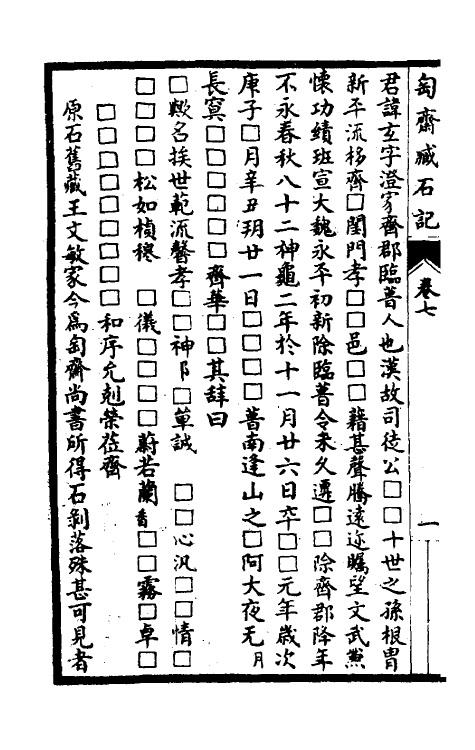 匋齋臧石記
卷七
一
君諱玄字澄寫齊郡臨菑人也漢故司徒公□□十世之孫根胄
新平流移齊□閨門孝□□邑□□籍甚聲騰遠迩矚望文武兼
懷功績班宣大魏永平初新除臨菑令未久遷□□除齊郡降年
不永春秋八十二神龜二年於十一月廿六日卒□□元年歲次
庚子□月辛丑玥廿一日□□□□菑南逢山之□阿大夜无月
長寞□□□□□□齊華□□其辞曰
□歟名挨世範流馨孝□□神□草誠 □□心汎□□情□
□□□□松如楨穟 □儀□□□□蔚若蘭香□□霧□卓□
□□□□□□□□和序允剋榮莅齊
原石舊藏王文敏家今爲匋齋尚書所得石剝落殊甚可見者